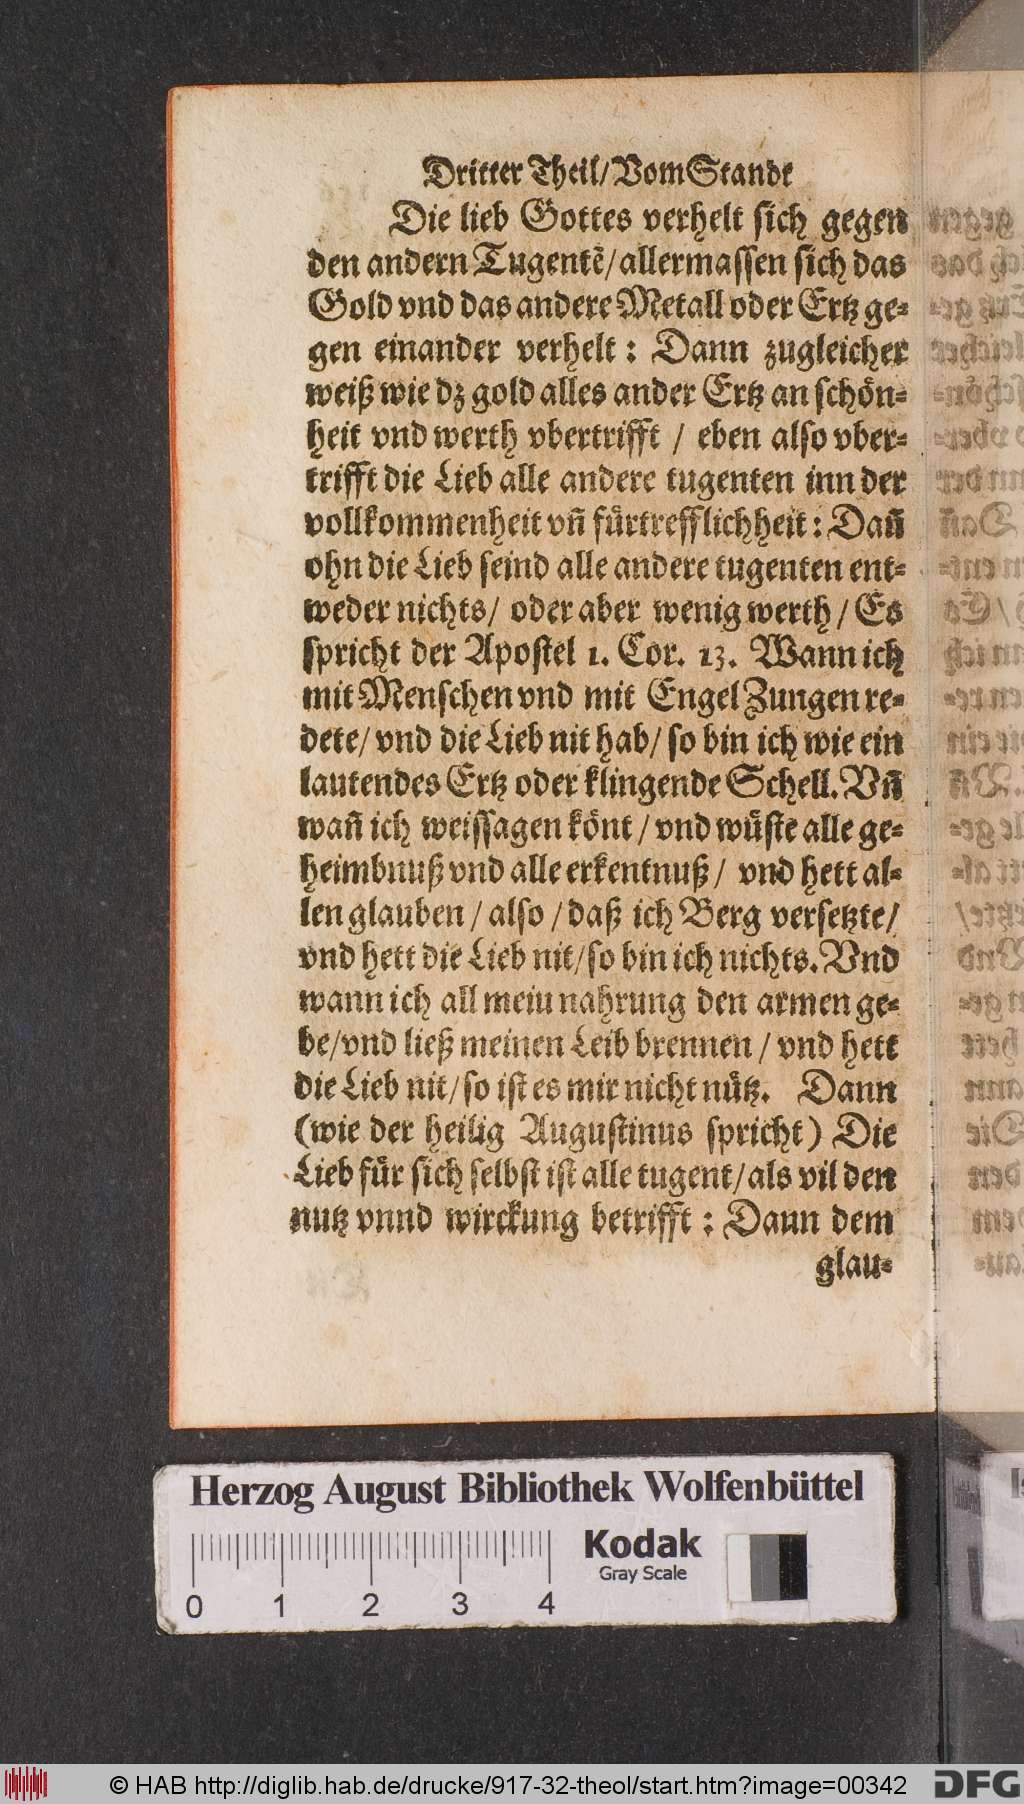 Dritter Theil/Vom Stande
Die lieb Gottes verhelt sich gegen
den andern Tugentẽ/allermassen sich das
Gold vnd das andere Metall oder Ertz ge-
gen einander verhelt: Dann zugleicher
weiß wie dz gold alles ander Ertz an schön-
heit vnd werth vbertrifft / eben also vber-
trifft die Lieb alle andere tugenten inn der
vollkommenheit vñ fürtrefflichheit: Dañ
ohn die Lieb seind alle andere tugenten ent-
weder nichts/ oder aber wenig werth / Es
spricht der Apostel 1. Cor. 13. Wann ich
mit Menschen vnd mit Engel Zungen re-
dete/ vnd die Lieb nit hab/ so bin ich wie ein
lautendes Ertz oder klingende Schell. Vñ
wañ ich weissagen könt / vnd wüste alle ge-
heimbnuß vnd alle erkentnuß / vnd hett al-
len glauben / also / daß ich Berg versetzte/
vnd hett die Lieb nit/so bin ich nichts. Vnd
wann ich all meiu nahrung den armen ge-
be/vnd ließ meinen Leib brennen / vnd hett
die Lieb nit/so ist es mir nicht nütz. Dann
(wie der heilig Augustinus spricht) Die
Lieb für sich selbst ist alle tugent/als vil den
nutz vnnd wirckung betrifft : Dann dem
glau-
Herzog August Bibliothek Wolfenbüttel
Kodak
Gray Scale
0 1 2 3 4
© HAB http://diglib.hab.de/drucke/917-32-theol/start.htm?image=00342
DFG